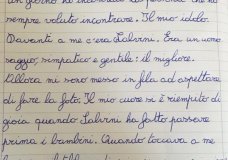 un giorno ho incontrato la persona che ho
sempre voluto incontrare. Il mio idolo.
Davanti a me c'era Salvini. Era un uomo
saggio, simpatico e gentile: il migliore.
Allora mi sono messo in fila ad aspettare
di fare la foto. Il mio cuore si è riempito di
gioia quando Salvini ha fatto passare
prima i bambini. Quando toccava a me